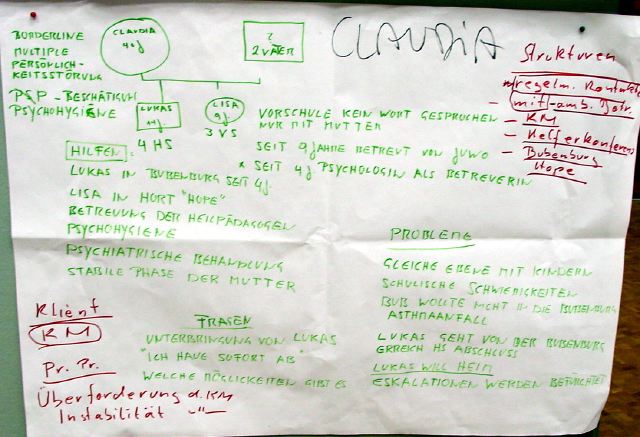 CLAUDIA
BORDERLINE
MULTIPLE
PERSÖNLICH-
KEITSSTÖRUNG
PSP - BESCHÄTIGUNG
PSYCHOHYGIENE
CLAUDIA
?
2 VÄTER
LUKAS
LISA
9J
4 HS
3 VS
VORSCHULE KEIN WORT GESPROCHEN
NUR MIT MUTTER
SEIT 9 JAHRE BETREUT VON JUWO
* SEIT 4J. PSYCHOLOGIN ALS BETREUERIN
Strukturen
regelm. Kontakte
- mit amb. Betr.
- KM
- Helferkonferenz
- Bubenburg
Hope
HILFEN:
LUKAS IN BUBENBURG SEIT 4J.
LISA IN HORT "HOPE"
BETREUUNG DER HEILPÄDAGOGEN
PSYCHOHYGIENE
PSYCHIATRISCHE BEHANDLUNG
STABILE PHASE DER MUTTER
PROBLEME
GLEICHE EBENE MIT KINDERN
SCHULISCHE SCHWIERIGKEITEN
BUB WOLLTE NICHT IN DIE BUBENBURG
ASTHMAANFALL
LUKAS GEHT VON DER BUBENBURG
ERREICH HS ABSCHLUSS
LUKAS WILL HEIM
ESKALATIONEN WERDEN BEFÜRCHTET
FRAGEN
UNTERBRINGUNG VON LUKAS
"ICH HAUE SOFORT AB"
WELCHE MÖGLICHKEITEN GIBT ES
Klient
KM
Pr. Pr.
Überforderung d. KM
Instabilität -"-